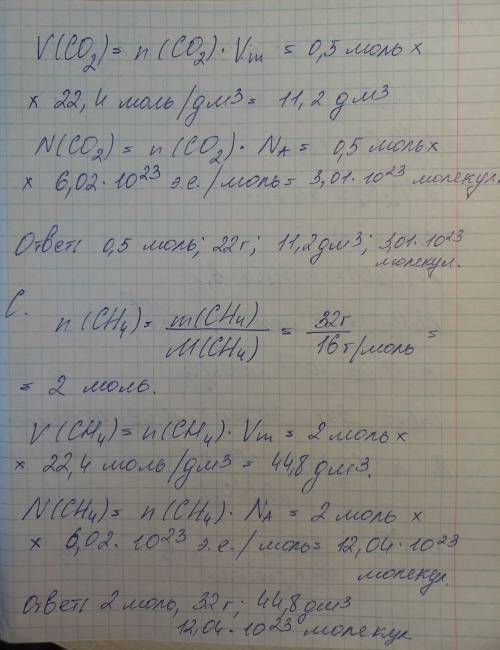 V(CO₂) = n(CO₂) · Vm = 0,5 моль х
х 22,4 моль/дм³ = 11,2 дм³
N(CO₂) = n(CO₂) · NA = 0,5 моль х
х 6,02 · 10²³ э.е./моль = 3,01 · 10²³ молекул.
Ответ: 0,5 моль; 22г; 11,2дм³; 3,01 · 10²³
молекул.
C.
n(CH₄) = m(CH₄)/M(CH₄) = 32г/16г/моль =
= 2 моль.
V(CH₄) = n(CH₄) · Vm = 2 моль х
х 22,4 моль/дм³ = 44,8 дм³.
N(CH₄) = n(CH₄) · NA = 2 моль х
х 6,02 · 10²³ э.е./моль = 12,04 · 10²³
молекул.
Ответ: 2 моль, 32г; 44,8дм³
12,04 · 10²³ молекул